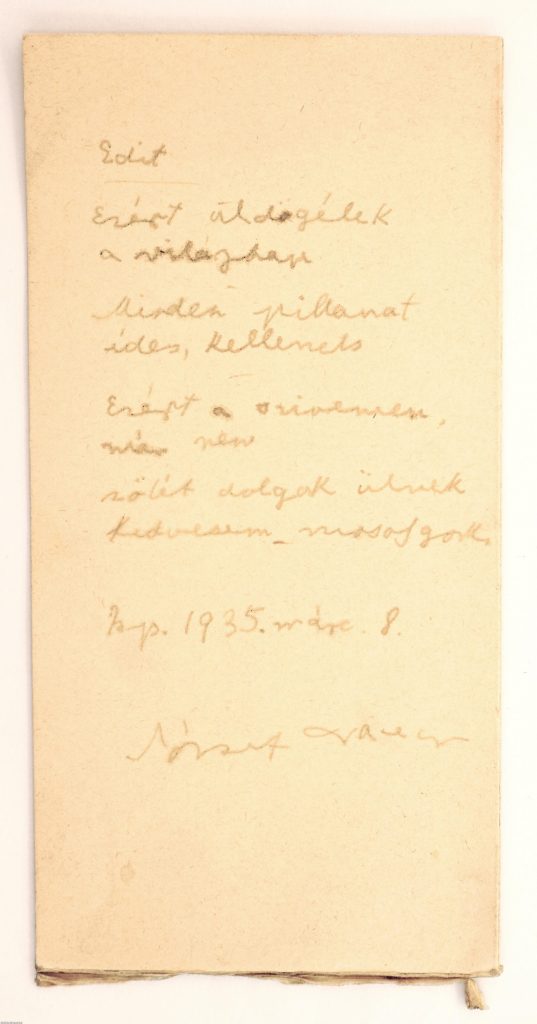 Edit
Ezért üldögélek
a világban
Minden pillanat
édes, kellenek
Ezért a szivemen,
már nem
sötét dolgok ülnek
kedvesem
Bp. 1935. márc. 8.
József